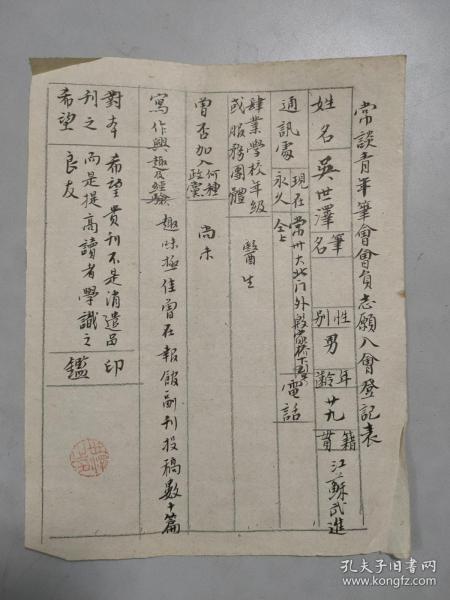 常談青年筆會會員志願入會登記表
姓名 吳世澤 筆名 性別 男 年齡 廿九 籍貫 江蘇武進
通訊處 現在 常州大北门外 電話
永久 仝上
肄業學校年級或服務團體 醫生
曾否加入何種政黨 尚未
寫作興趣及經驗 趣味極佳曾在報館副刊投稿數十篇
對本刊之希望 希望貴刊不是消遣品而是提高讀者學識之良友
印鑑
孔夫子旧书网
www.kongfz.com